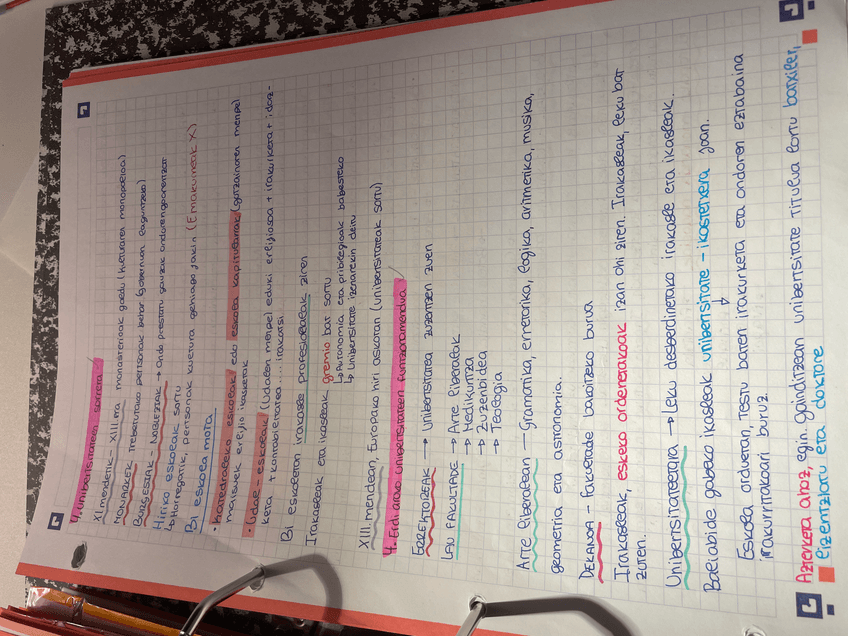 4. Unibertsitateen sorrera
XI. mendetik - XIII. ra monasterioak galdu (kulturaren monopolioa)
MONARKEK trebatutako pertsonak behar (gobernuan laguntzeko)
BURGESIAK - NOBLEZIAK → Ondo prestatu gauzak ondorengoentzat
Hiriko eskolak sortu
↳ Horregatik, pertsonak kultura gehiago jakin (Emakumeak X)
Bi eskola mota
• Katedraleko eskolak/ edo eskola kapitularrak (gotzainaren menpe)
maisuek erlijio ikasketak
• Udal-eskolak (Udalen menpe) eduki erlijiosoa + irakurketa + idaz-
keta + kontabilitatea .... irakatsi.
Bi eskoletan irakasle profesionalak ziren
Irakasleak eta ikasleak gremio bat sortu
↳ Autonomia eta pribilegioak babesteko
↳ Unibertsitate izenarekin deitu
XIII. mendean, Europako hiri askotan (unibertsitateak sortu)
4. Erdi aroko unibertsitateen funtzionamendua
ERREKTOREAK → Unibertsitatea zuzentzen zuen
LAU FAKULTADE → Arte liberalak
→ Medikuntza
→ Zuzenbidea
→ Teologia
Arte liberalean — Gramatika, erretorika, logika, aritmetika, musika,
geometria eta astronomia.
DEKANOA - fakultade bakoitzeko burua
Irakasleak, eskeko ordenetakoak izan ohi ziren. Irakasleak, leku bat
zuten.
Unibertsitateetara → Leku desberdinetako irakasle eta ikasleak.
Baliabide gabeko ikasleak unibertsitate - ikastetxera joan.
Eskola orduetan, testu baten irakurketa eta ondoren eztabaina
irakurritakoari buruz.
Azterketa ahoz, egin gainditzean unibertsitate titulua lortu batxiler,
lizentziatu eta doktore